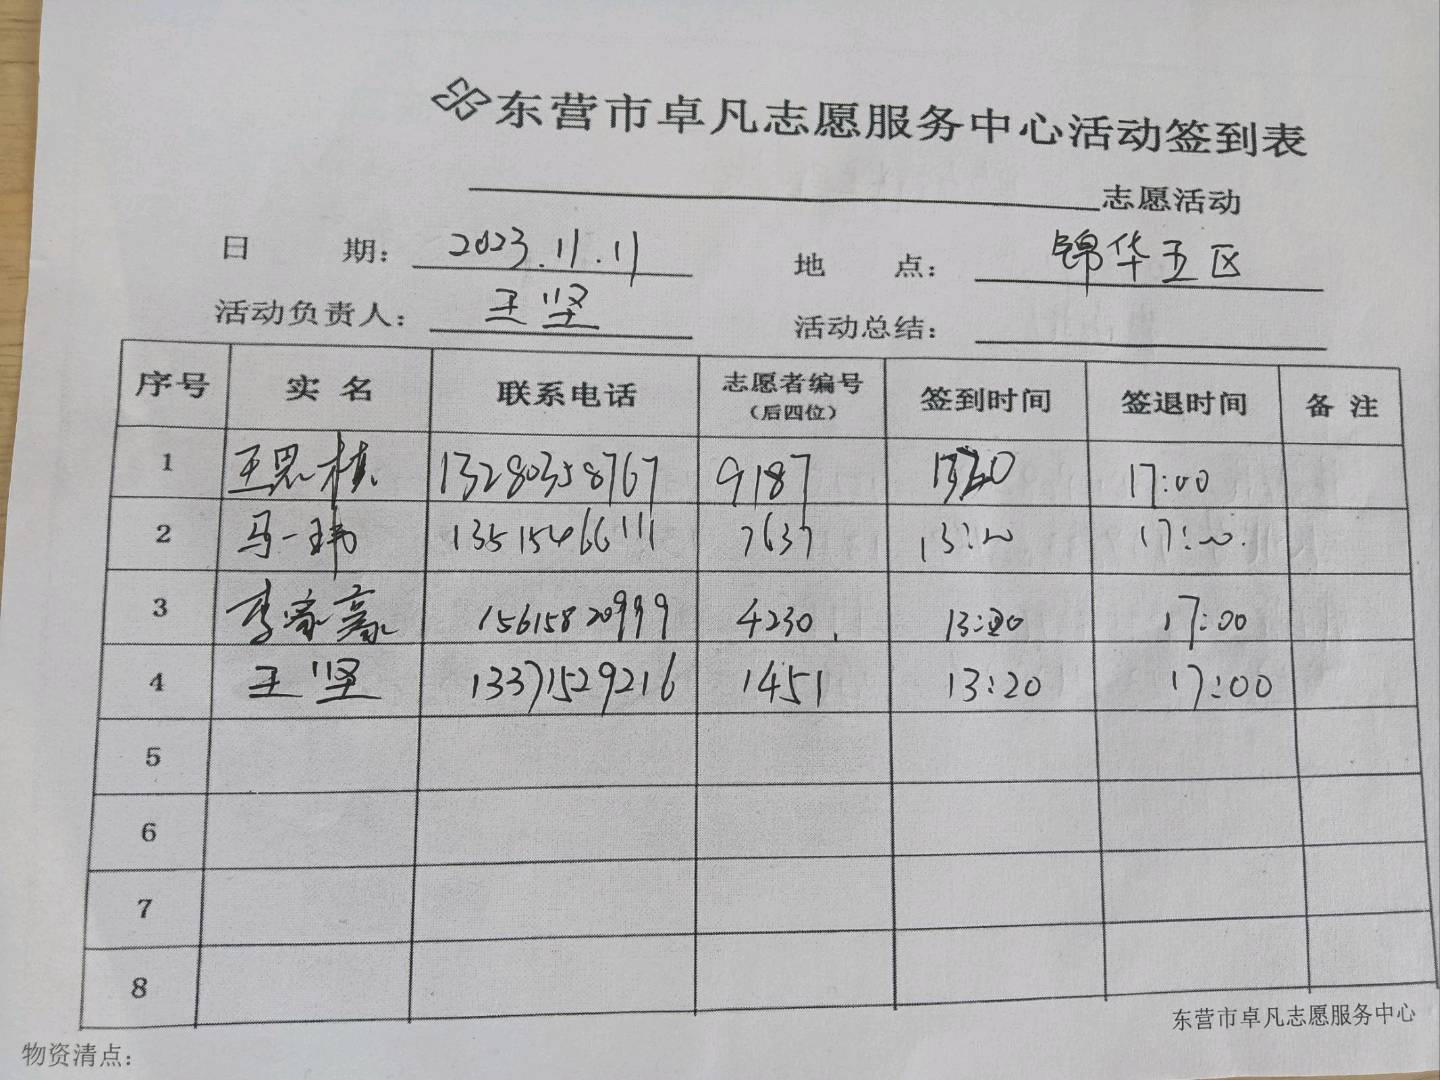 东营市卓凡志愿服务中心活动签到表
志愿活动
日 期： 2023.11.11 地 点： 锦华五区
活动负责人： 王坚 活动总结：
序号 实名 联系电话 志愿者编号（后四位） 签到时间 签退时间 备注
1 王思桢 13280358767 9187 17:00
2 马一玮 13515466111 7637 13:20 17:00
3 李家豪 15615820999 4230 13:20 17:00
4 王坚 13371529216 1451 13:20 17:00
5
6
7
8
东营市卓凡志愿服务中心
物资清点：